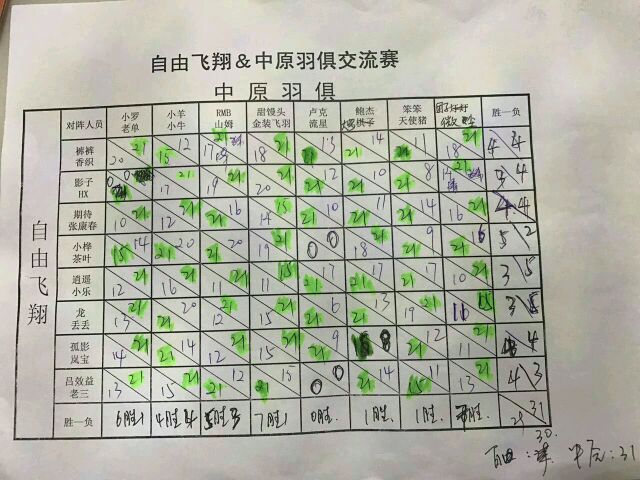 自由飞翔&中原羽俱交流赛
中原羽俱
对阵人员 小罗 老单 小羊 小牛 RMB 山姆 甜馒头 金装飞羽 卢克 流星 鲍杰 笨笨 天使猪 胜一负
自由飞翔
裤裤 香织 20 21 15 12 17 21 18 21 13 21 14 21 11 18 21 4 4
影子 HX 17 21 19 21 20 21 21 12 21 10 21 8 21 4
期待 张康春 10 21 12 21 21 16 14 15 21 10 21 11 21 14 16 21 4 4
小桦 茶叶 15 14 21 20 21 20 19 21 0 0 21 18 21 9 21 16 5 2
逍遥 小乐 12 21 16 21 11 21 11 15 21 17 21 17 21 17 10 21 3 5
龙 丢丢 13 21 21 20 12 21 15 21 21 6 21 13 19 21 16 15 3 5
孤影 岚宝 14 21 21 14 12 21 15 21 21 9 8 21 2 11 21 4
吕效益 老三 13 21 15 21 21 12 21 15 0 0 21 14 15 11 13 21 4 3
胜一负 6胜1 4胜4 5胜3 7胜1 0胜. 1胜. 1胜. 胜. 31
30.
自由: 中原:31